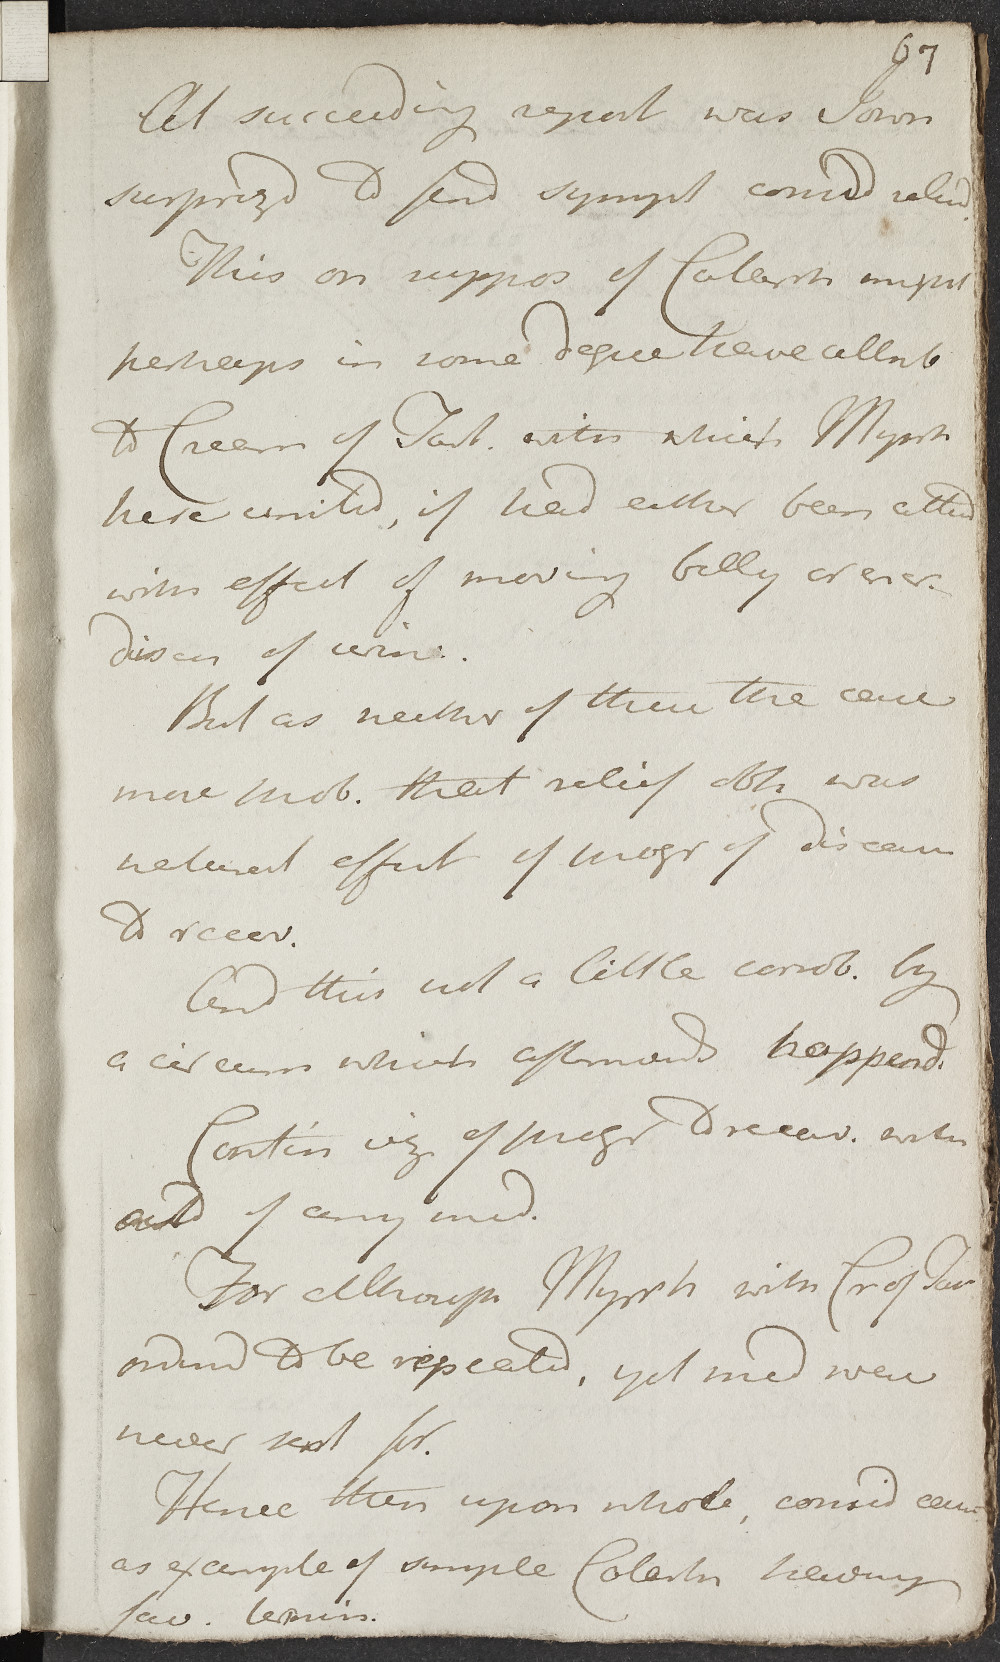 67
At succeeding report was Iown
surprizd to find sympt consid relievd.
This on suppos of Catarrh might
perhaps in some degree have attrib
to Cream of Tart. with which Myrrh
here united, if had either been attend
with effect of moving belly or encr.
discn of urine.
But as neither of these the case
more prob. that relief obtn was
natural effect of progr of disease
to recov.
And this not a little corrob. by
a circum which afterwards happend.
Contin viz of progr to recov. with
out of any med.
For although Myrrh with Cr of Tar
ordered to be repeated, yet med were
never sent for.
Hence then upon whole, consid case
as example of simple Catarrh having
fav. termin.